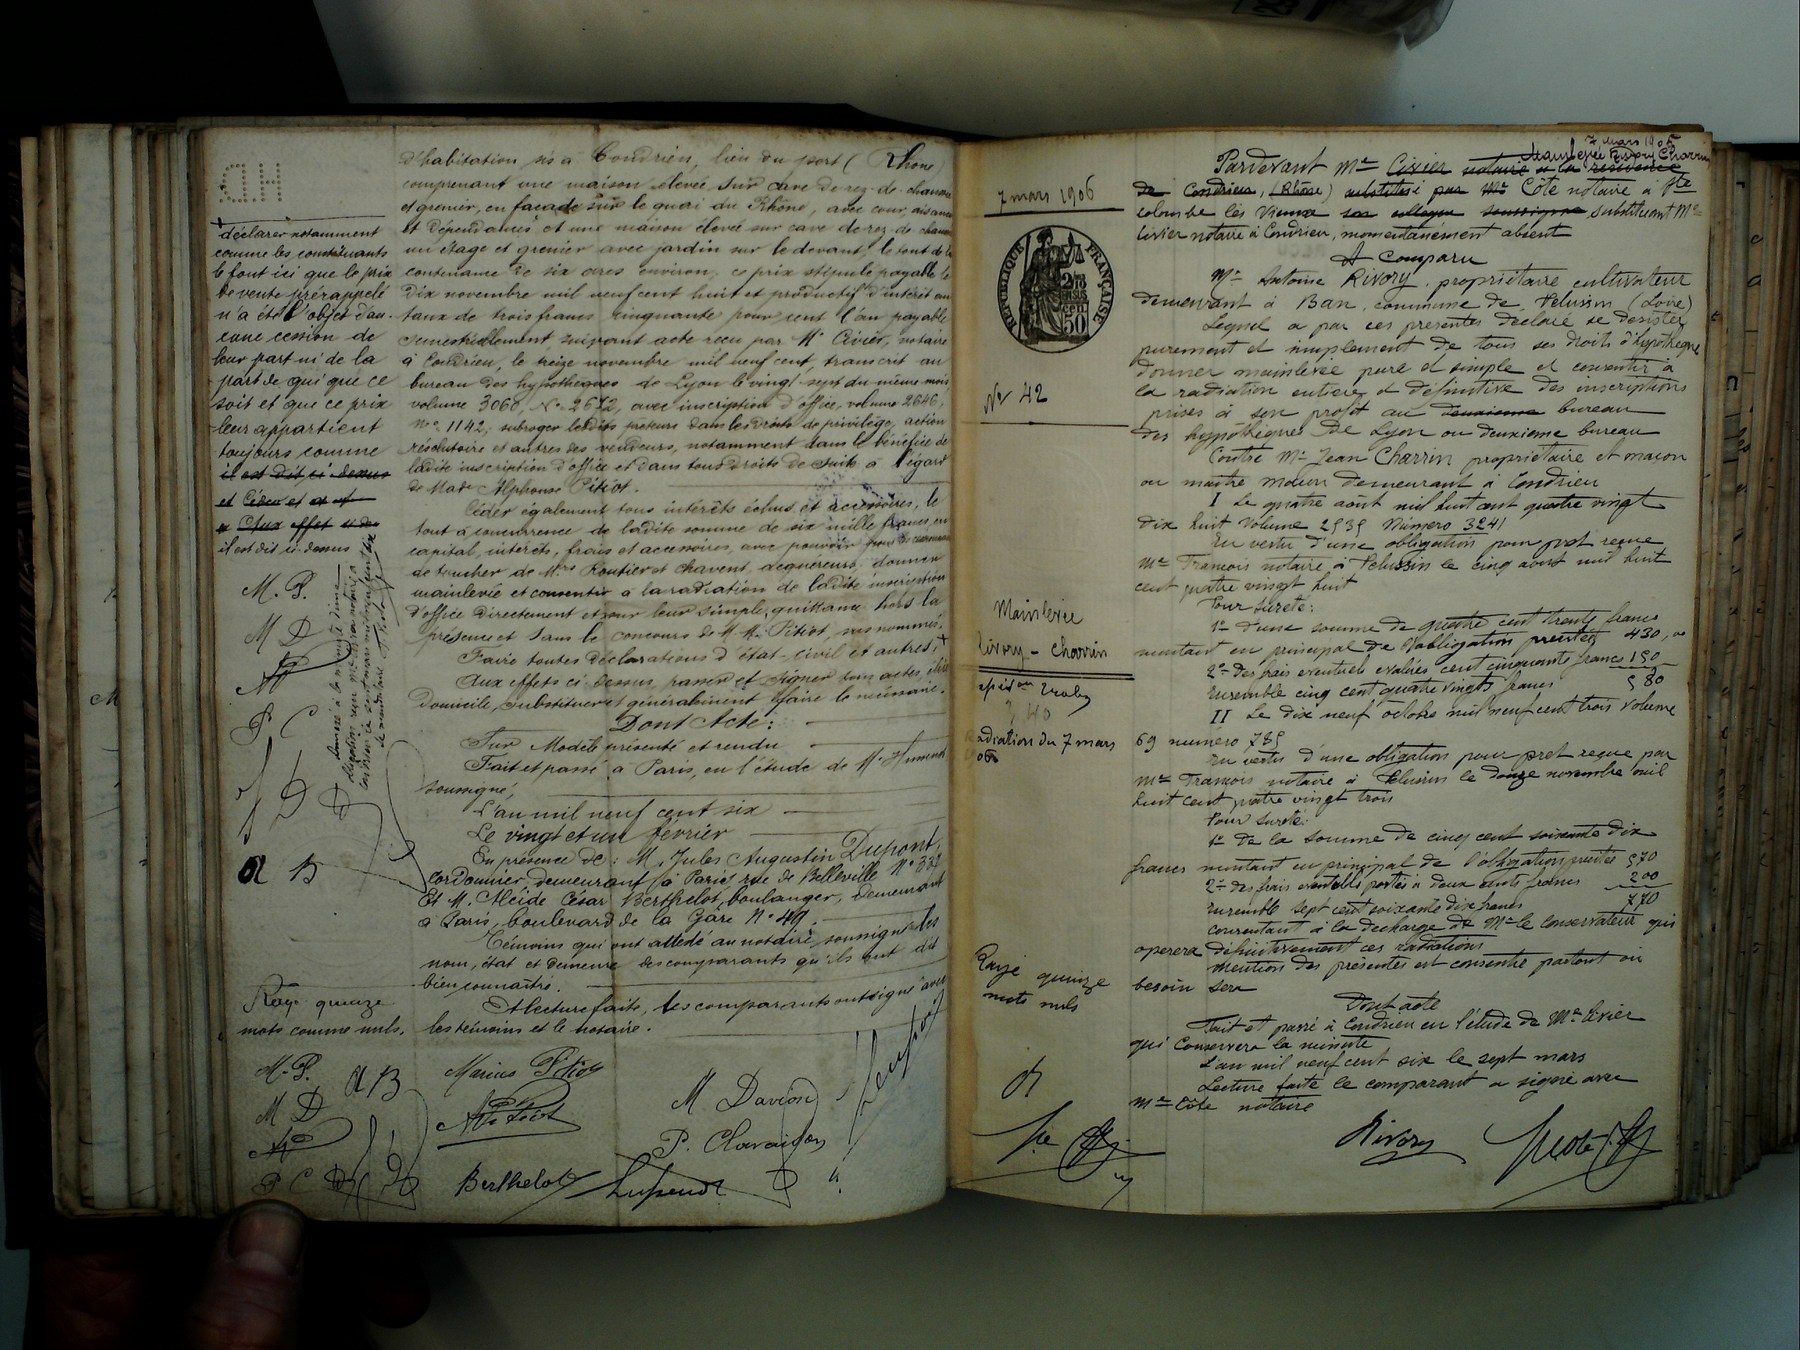 HD
d'habitation sis à Condrieu, lieu du port (Rhône)
comprenant une maison élevée sur cave de rez-de-chaussée
et grenier, en façade sur le quai du Rhône, avec cour, aisances
et dépendances et une maison élevée sur cave de rez-de-chaussée
un étage et grenier avec jardin sur le devant, le tout de la
contenance de six ares environ, ce prix stipulé payable le
dix novembre mil neuf cent huit et productif d'intérêt au
taux de trois francs cinquante pour cent l'an payable
semestriellement suivant acte reçu par Me Civier, notaire
à Condrieu, le treize novembre mil neuf cent, transcrit au
bureau des hypothèques de Lyon le vingt sept du même mois
volume 3060, No 2672, avec inscription d'office, volume 2646,
No 1142; subroger lesdits prêteurs dans les droits de privilège, action
résolutoire et autres des vendeurs, notamment dans le bénéfice de
ladite inscription d'office et dans tous droits de suite à l'égard
de Made Alphonse Pitiot.
Céder également tous intérêts échus et accessoires, le
tout à concurrence de ladite somme de six mille francs, en
capital, intérêts, frais et accessoires, avec pouvoir pour le
de toucher de Mrs Routier et Chavent, acquéreurs, donner
mainlevée et consentir à la radiation de ladite inscription
d'office directement et pour leur simple quittance hors la
présence et sans le concours de M. Me Pitiot, sus nommés.
Faire toutes déclarations d'état-civil et autres; +
Aux effets ci-dessus, passer et signer tous actes, élire
domicile, substituer et généralement faire le nécessaire.
Dont Acte:
Sur Modèle présenté et rendu
Fait et passé à Paris, en l'étude de Me
soussigné,
L'an mil neuf cent six
Le vingt et un février
En présence de: M. Jules Augustin Dupont,
cordonnier, demeurant à Paris rue de Belleville No 332
Et M. Alcide César Berthelot, boulanger, demeurant
à Paris, boulevard de la Gare No 49.
Témoins qui ont attesté au notaire soussigné les
nom, état et demeure des comparants qu'ils ont dit
bien connaître.
Et lecture faite, les comparants ont signé avec
les témoins et le notaire.
Marius Pitiot
M Davion
P. Clavaizon
Berthelot
+
déclarer notamment
comme les constituants
le font ici que le prix
de vente prérappelé
n'a été l'objet d'au-
cune cession de
leur part ni de la
part de qui que ce
soit et que ce prix
leur appartient
toujours comme
il est dit ci-dessus
et Céder et
Aux effet ci des
il est dit ci-dessus
M. P.
M D
AP
P C
A B
Rayé quinze
mots comme nuls.
M. P.
A B
M D
P C
7 mars 1906
RÉPUBLIQUE FRANÇAISE
50
No 42
Mainlevée
Rivory - Charrin
radiation du 7 mars
06
Rayé quinze
mots nuls
7 mars 1906
Mainlevée Rivory Charrin
Pardevant Me Civier notaire à la résidence
de Condrieu, (Rhône) substitué par Me Côte notaire à Ste
Colombe lès Vienne son collègue soussigné substituant Me
Civier notaire à Condrieu, momentanément absent
A Comparu
Mr Antoine Rivory, propriétaire cultivateur
demeurant à Ban, commune de Pélussin (Loire)
Lequel a par ces présentes déclaré se désister
purement et simplement de tous ses droits d'hypothèque
donner mainlevée pure et simple et consentir à
la radiation entière et définitive des inscriptions
prises à son profit au deuxième bureau
des hypothèques de Lyon ou deuxième bureau
Contre Mr Jean Charrin propriétaire et maçon
ou maître maçon demeurant à Condrieu
I Le quatre août mil huit cent quatre vingt
dix huit volume 2535 Numéro 3241
En vertu d'une obligation pour prêt reçue
Me Tramois notaire à Pélussin le cinq août mil huit
cent quatre vingt huit
Pour sûreté:
1o d'une somme de quatre cent trente francs
montant en principal de l'obligation précitée 430,00
2o des frais éventuels évalués cent cinquante francs 150
Ensemble cinq cent quatre vingts francs 580
II Le dix neuf octobre mil neuf cent trois volume
69 numéro 785
En vertu d'une obligation pour prêt reçue par
Me Tramois notaire à Pélussin le douze novembre mil
huit cent quatre vingt trois
Pour sûreté:
1o de la somme de cinq cent soixante dix
francs montant en principal de l'obligation précitée 570
2o des frais éventuels portés à deux cents francs 200
Ensemble sept cent soixante dix francs 770
Consentant à la décharge de Mr le Conservateur qui
opèrera définitivement ces radiations
Mention des présentes est consentie partout où
besoin sera
Dont acte
Fait et passé à Condrieu en l'étude de Me Civier
qui conservera la minute
L'an mil neuf cent six le sept mars
Lecture faite le comparant a signé avec
Me Côte notaire
Rivory